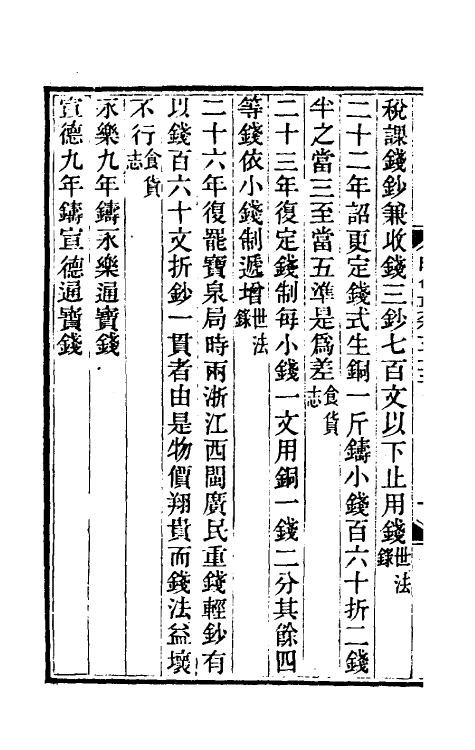 稅課錢鈔兼收錢三鈔七百文以下止用錢世法錄
二十二年詔更定錢式生銅一斤鑄小錢百六十折二錢
半之當三至當五準是爲差食貨志
二十三年復定錢制每小錢一文用銅一錢二分其餘四
等錢依小錢制遞增世法錄
二十六年復罷寶泉局時兩浙江西閩廣民重錢輕鈔有
以錢百六十文折鈔一貫者由是物價翔貴而錢法益壞
不行食貨志
永樂九年鑄永樂通寶錢
宣德九年鑄宣德通寶錢